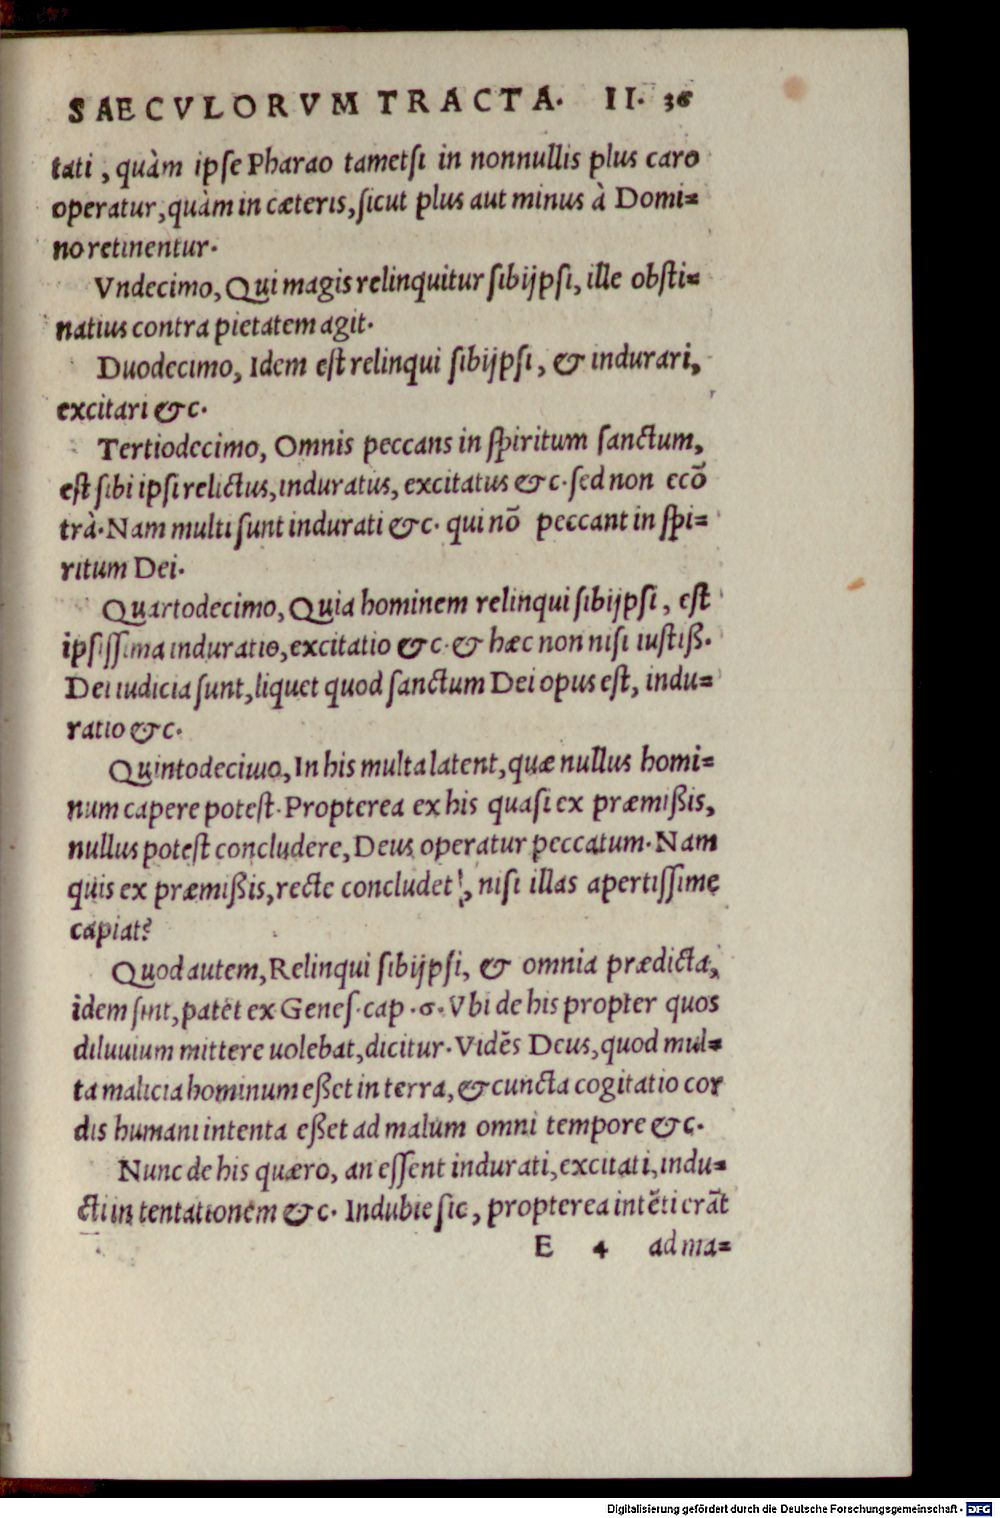 SAECVLORVM TRACTA. II. 36
tati, quàm ipſe Pharao tametſi in nonnullis plus caro
operatur, quàm in cæteris, ſicut plus aut minus à Domi=
no retinentur.
Vndecimo, Qui magis relinquitur ſibijpſi, ille obſti=
natius contra pietatem agit.
Duodecimo, Idem eſt relinqui ſibijpſi, & indurari,
excitari &c.
Tertiodecimo, Omnis peccans in ſpiritum ſanctum,
eſt ſibi ipſi relictus, induratus, excitatus &c. ſed non ecõ
trà. Nam multi ſunt indurati &c. qui nõ peccant in ſpi=
ritum Dei.
Quartodecimo, Quia hominem relinqui ſibijpſi, eſt
ipſiſſima induratio, excitatio &c. & hæc non niſi iuſtiß.
Dei iudicia ſunt, liquet quod ſanctum Dei opus eſt, indu=
ratio &c.
Quintodecimo, In his multa latent, quæ nullus homi=
num capere poteſt. Propterea ex his quaſi ex præmißis,
nullus poteſt concludere, Deus operatur peccatum. Nam
quis ex præmißis, recte concludet, niſi illas apertiſſime
capiat?
Quod autem, Relinqui ſibijpſi, & omnia prædicta,
idem ſint, patet ex Geneſ. cap. 6. Vbi de his propter quos
diluuium mittere uolebat, dicitur. Vidẽs Deus, quod mul=
ta malicia hominum eßet in terra, & cuncta cogitatio cor
dis humani intenta eßet ad malum omni tempore &c.
Nunc de his quæro, an eſſent indurati, excitati, indu=
cti in tentationem &c. Indubie ſic, propterea intẽti erãt
E 4 ad ma=
Digitalisierung gefördert durch die Deutsche Forschungsgemeinschaft - DFG